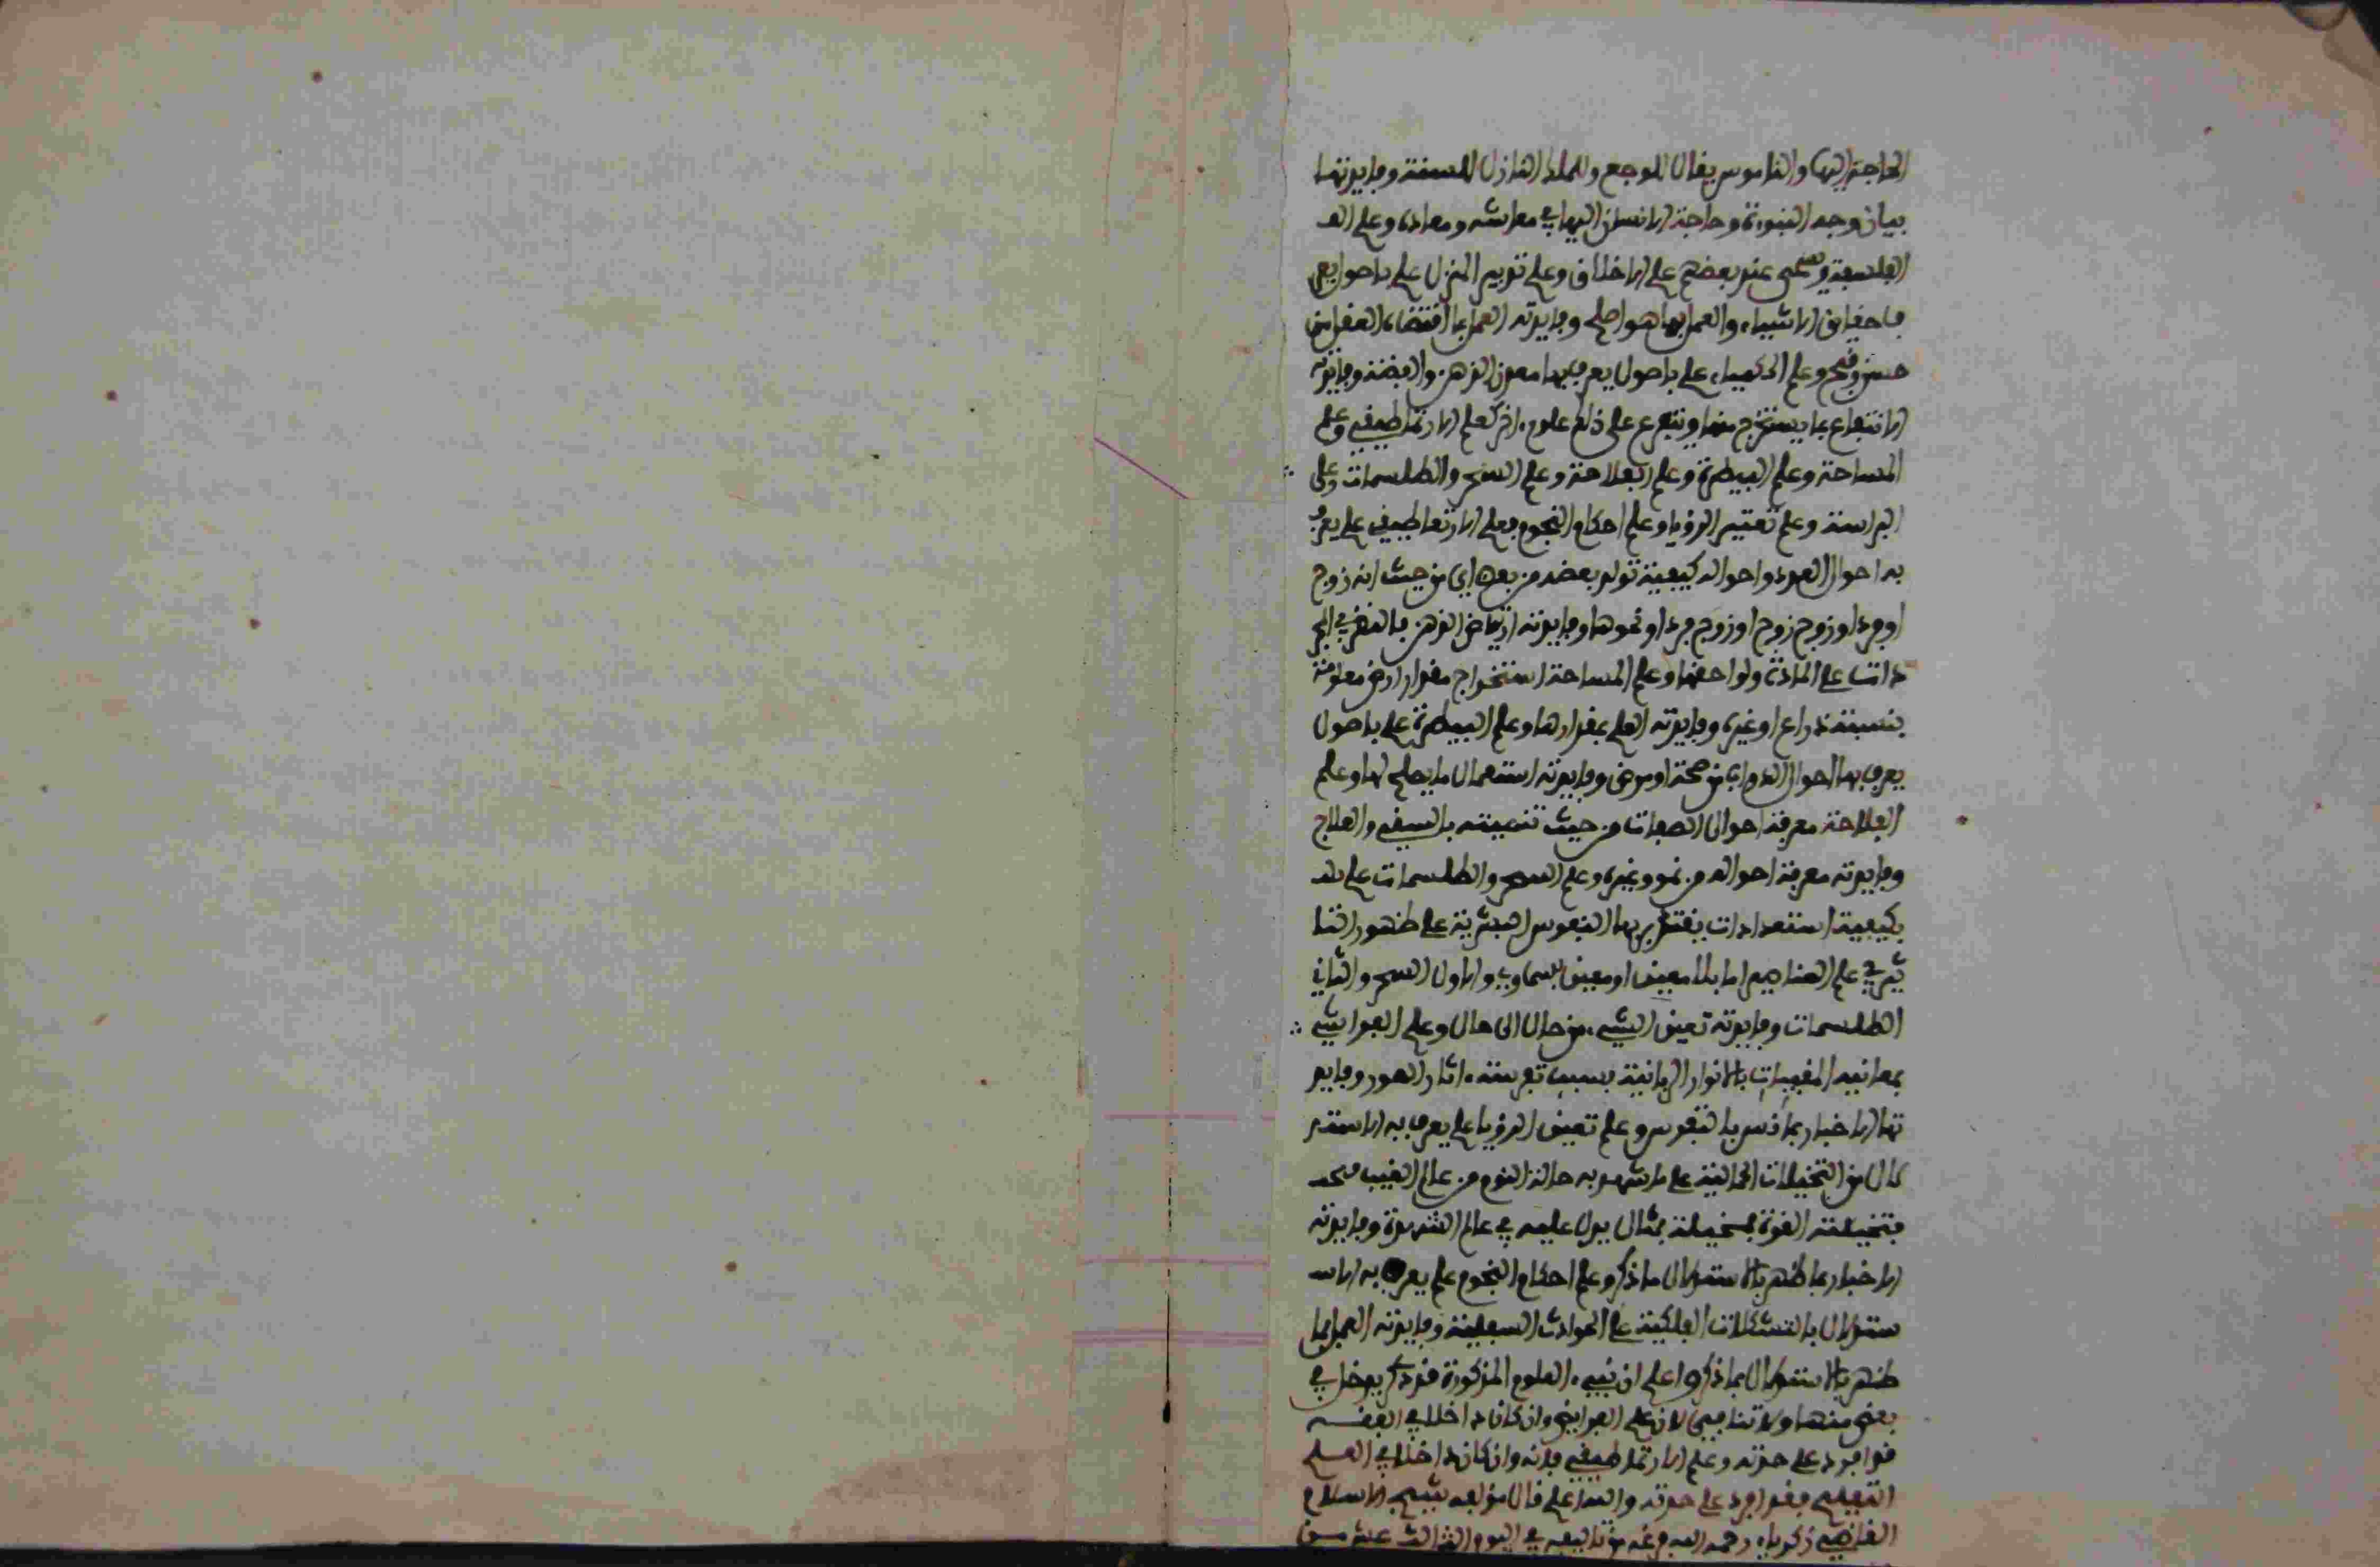 الحاجة اليها والناموس يقال للوحي وللملك النازل للسنة وفايدتها
بيان وجه النبوءة وحاجة الانسان اليها في معاشه ومعاده وعلم الـ
الفلسفة ويسمى عند بعضهم علم الاخلاق وعلم تدبير المنزل علم باصول يعرف
بها حقايق الاشياء والعمل بما هو اصلح وفايدته العمل بما اقتضاه العقل من
حسن وقبح وعلم الكيمياء علم باصول يعرف بها معدن الذهب والفضة وفايدته
الانتفاع بما يستخرج منها ويتفرع على ذلك علوم اخر كعلم الارتماطيقي وعلم
المساحة وعلم البيطرة وعلم الفلاحة وعلم السحر والطلسمات وعلم
الفراسة وعلم تعبير الرؤيا وعلم احكام النجوم فعلم الارتماطيقي علم يعرف
به احوال العدد واحواله كيفية تولد بعضه من بعض اي من حيث انه زوج
او فرد او زوج زوج او زوج فرد او نحوها وفايدته ارتياض الذهن بالنظر في المجر
دات على المادة ولواحقها وعلم المساحة استخراج مقدار ارض معلومة
بنسبة ذراع او غيره وفايدته العلم بمقدارها وعلم البيطرة علم باصول
يعرف بها احوال الدواب من صحة او مرض وفايدته استعمال ما يصلح لها وعلم
الفلاحة معرفة احوال النبات من حيث تنميته بالسقي والعلاج
وفايدته معرفة احواله من نمو وغيره وعلم السحر والطلسمات علم
بكيفية استعدادات يقتدر بها النفوس البشرية على ظهور التا
ثير في علم العناصر اما بلا معين او معين سماوي والاول السحر والثاني
الطلسمات وفايدته تغيير الشيء من حال الى حال وعلم الفراسة
بمعانيه المغيبات بالانوار الربانية بسبب تفرسه اثار الصور وفايد
تها الاخبار بما قدر بالنفوس وعلم تعبير الرؤيا علم يعرف به الاستد
لال من التخيلات الحالمية على ما شهد به حالة النوم من عالم الغيب
فتخيلته القوة المخيلة بمثال يدل عليه في عالم الشهادة وفايدته
الاخبار بما ظهر بالاستدلال ما ذكر وعلم احكام النجوم علم يعرف به الاسـ
ستدلال بالتشكلات الفلكية على الحوادث السفلية وفايدته العمل بما
ظهر بالاستدلال بما ذكر واعلم ان شيء العلوم المذكورة قد يدخل في
بعض منها ولا تنافي لان علم الفرايض وان كان داخلا في الفقه
فقد افرد على حدته وعلم الارتماطيقي فانه وان كان داخلا في العلم
التعليمي فقد افرد على حدته والله اعلم قال مؤلفه شيخ الاسلام
القاضي زكرياء رحمه الله فرغه من تاليفه في اليوم الثالث عشر من